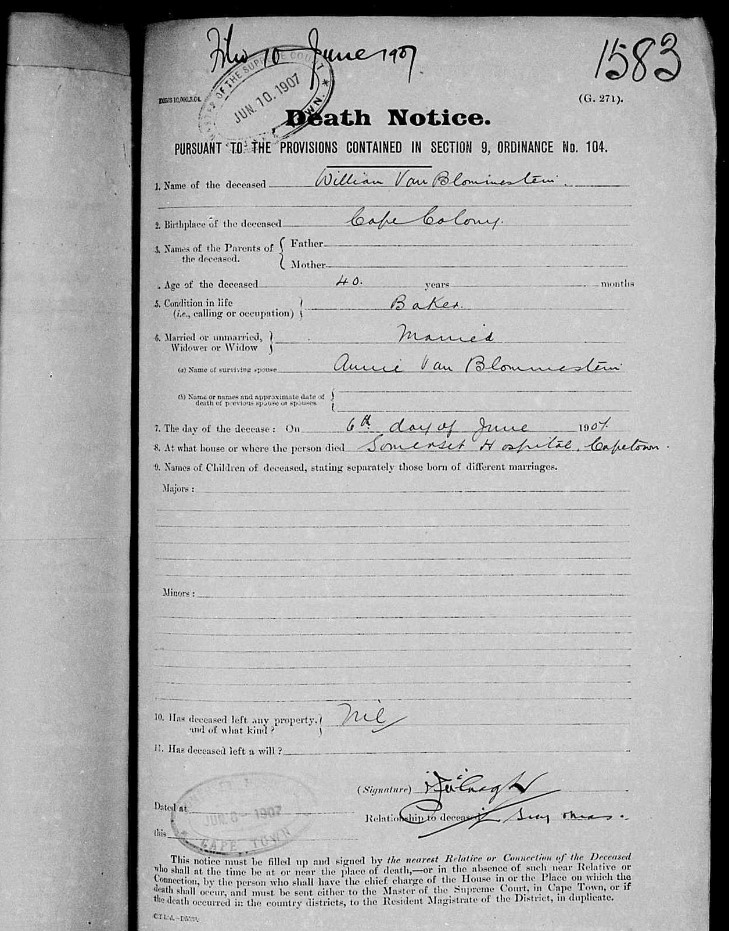 Filed 10 June 1907
1583
OF THE SUPREME COURT
JUN. 10. 1907
TOWN.
(G. 271).
Death Notice.
PURSUANT TO THE PROVISIONS CONTAINED IN SECTION 9, ORDINANCE No. 104.
1. Name of the deceased William Van Blommestein
2. Birthplace of the deceased Cape Colony.
3. Names of the Parents of the deceased. { Father
Mother
. Age of the deceased 40. years months
5. Condition in life (i.e., calling or occupation) } Baker.
6. Married or unmarried, Widower or Widow } Married
(a) Name of surviving spouse Annie Van Blommestein
(b) Name or names and approximate date of death of previous spouse or spouses }
7. The day of the decease: On 6th day of June 1907.
8. At what house or where the person died Somerset Hospital, Capetown.
9. Names of Children of deceased, stating separately those born of different marriages.
Majors:
Minors:
10. Has deceased left any property, and of what kind? } Nil
11. Has deceased left a will?
(Signature)
Dated at
JUN 8 - 1907
CAPE TOWN
Relationship to deceased
this
This notice must be filled up and signed by the nearest Relative or Connection of the Deceased
who shall at the time be at or near the place of death,—or in the absence of such near Relative or
Connection, by the person who shall have the chief charge of the House in or the Place on which the
death shall occur, and must be sent either to the Master of the Supreme Court, in Cape Town, or if
the death occurred in the country districts, to the Resident Magistrate of the District, in duplicate.